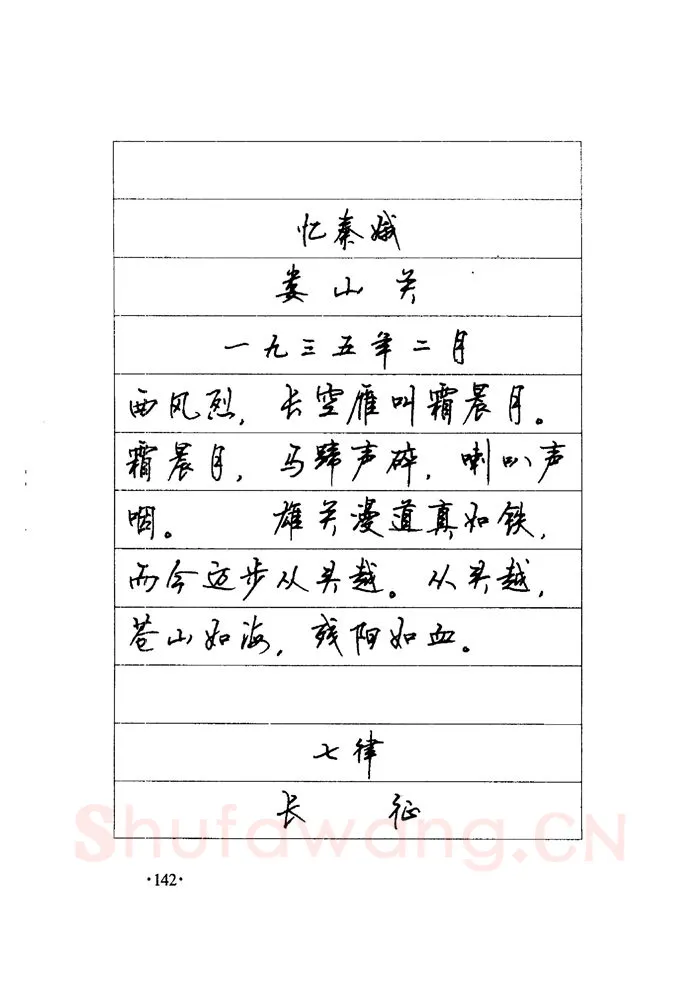 忆秦娥
娄山关
一九三五年二月
西风烈，长空雁叫霜晨月。
霜晨月，马蹄声碎，喇叭声
咽。 雄关漫道真如铁，
而今迈步从头越。从头越，
苍山如海，残阳如血。
七律
长 征
Shufawang.CN
·142·